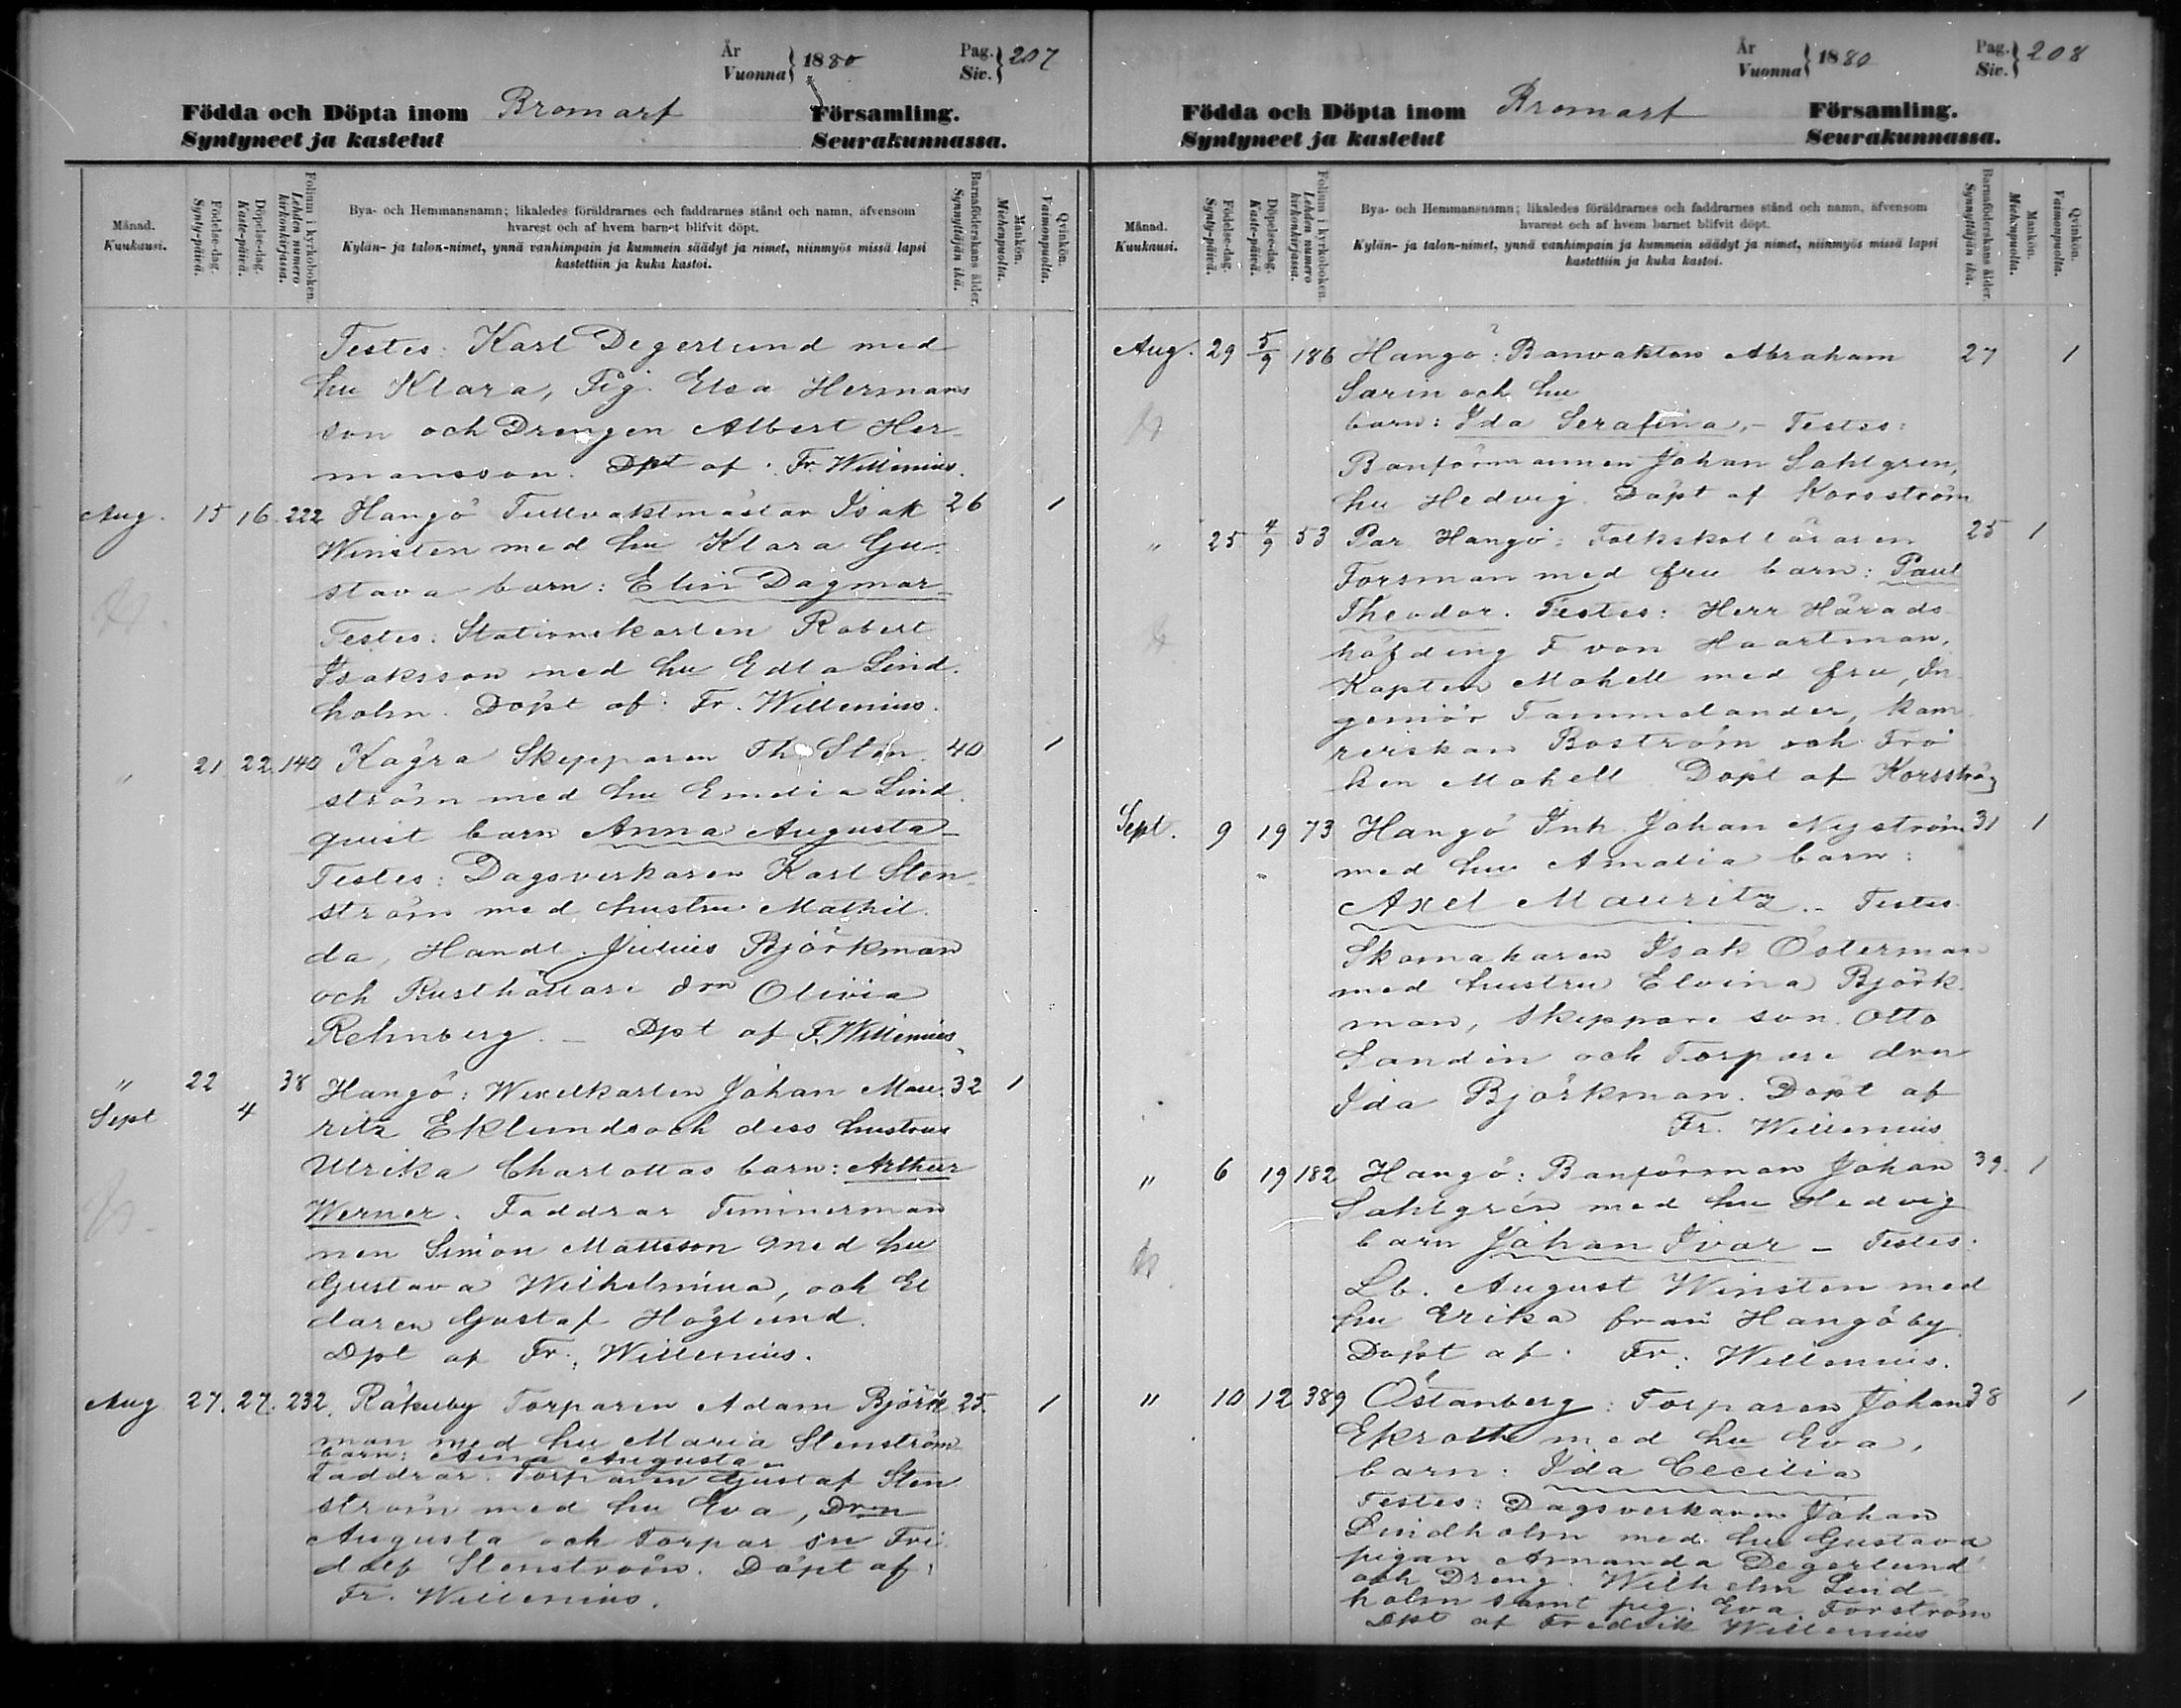 År
Vuonna } 1880
Pag.
Siv. } 207
Födda och Döpta inom Bromarf Församling.
Syntyneet ja kastetut Seurakunnassa.
Månad.
Kuukausi.
Födelse-dag.
Synty-päivä.
Döpelse-dag.
Kaste-päivä.
Folium i kyrkoboken.
Lehden numero
kirkonkirjassa.
Bya- och Hemmansnamn; likaledes föräldrarnes och faddrarnes stånd och namn, äfvensom
hvarest och af hvem barnet blifvit döpt.
Kylän- ja talon-nimet, ynnä vanhimpain ja kummein säädyt ja nimet, niinmyös missä lapsi
kastettiin ja kuka kastoi.
Barnaföderskans ålder.
Synnyttäjän ikä.
Mankön.
Miehenpuolta.
Qvinkön.
Vaimonpuolta.
Testes: Karl Degerlund med
hu Klara, Pig. Elsa Hermans
son och Drengen Albert Her-
mansson. Dpt af: Fr. Willenius.
Aug. 15 16. 222 Hangö Tullvaktmästar Isak 26 1
Winsten med hu Klara Gu-
stava barn: Elin Dagmar
Testes: Stationskarlen Robert
Isaksson med hu Edla Lind-
holm. Döpt af: Fr. Willenius.
" 21 22. 140 Kagra Skepparen Th. Sten- 40 1
ström med hu Emelia Lind-
quist barn Anna Augusta
Testes: Dagsverkaren Karl Sten-
ström med hustru Mathil-
da, Handl. Julius Björkman
och Rusthållare drn Olivia
Rehnberg. – Dpt af F. Willenius.
" 22 38 Hangö: Wexelkarlen Johan Mau- 32 1
Sept 4 ritz Eklunds och dess hustrus
Ulrika Charlottas barn: Arthur
Werner. Faddrar Timmerman
nen Simon Mattsson med hu
Gustava Wilhelmina, och El
daren Gustaf Höglund.
Dpt af Fr. Willenius.
Aug 27. 27. 232. Räfsby Torparen Adam Björk 25. 1
man med hu Maria Stenström
barn: Aina Augusta
Faddrar: Torparen Gustaf Sten
ström med hu Eva, Drn
Augusta och Torpar sn Fri
dolf Stenström. Döpt af:
Fr. Willenius.
År
Vuonna } 1880
Pag.
Siv. } 208
Födda och Döpta inom Bromarf Församling.
Syntyneet ja kastetut Seurakunnassa.
Månad.
Kuukausi.
Födelse-dag.
Synty-päivä.
Döpelse-dag.
Kaste-päivä.
Folium i kyrkoboken.
Lehden numero
kirkonkirjassa.
Bya- och Hemmansnamn; likaledes föräldrarnes och faddrarnes stånd och namn, äfvensom
hvarest och af hvem barnet blifvit döpt.
Kylän- ja talon-nimet, ynnä vanhimpain ja kummein säädyt ja nimet, niinmyös missä lapsi
kastettiin ja kuka kastoi.
Barnaföderskans ålder.
Synnyttäjän ikä.
Mankön.
Miehenpuolta.
Qvinkön.
Vaimonpuolta.
Aug. 29 5/9 186 Hangö: Banvakten Abraham 27 1
Sarin och hu
barn: Ida Serafina, – Testes:
Banförmannen Johan Sahlgren,
hu Hedvig. Döpt af Korsström
" 25 4/9 53 Par Hangö: Folkskolläraren 25 1
Forsman med fru barn: Paul
Theodor. Testes: Herr Härads
höfding F von Haartman,
Kapten Mahell med fru, In
geniör Tammelander, kam
rerskan Boström och Frö
ken Mahell. Döpt af Korsström
Sept. 9 19 73 Hangö Inh. Johan Nyström 31 1
med hu Amalia barn:
Axel Mauritz. – Testes
Skomakaren Isak Österman
med hustru Elvina Björk-
man, skeppare son Otto
Sandin och Torpare drn
Ida Björkman. Döpt af
Fr. Willenius
" 6 19 182 Hangö: Banförman Johan 39. 1
Sahlgrén med hu Hedvig
barn Johan Ivar – Testes.
Lb. August Winsten med
hu Erika från Hangöby.
Döpt af: Fr. Willenius.
" 10 12 389 Östanberg: Torparen Johan 38 1
Ekroth med hu Eva,
barn: Ida Cecilia
Testes: Dagsverkaren Johan
Lindholm med hu Gustava
pigan Amanda Degerlund
och Dreng. Wilhelm Lind-
holm samt pig. Eva Forström
Dpt af Fredrik Willenius